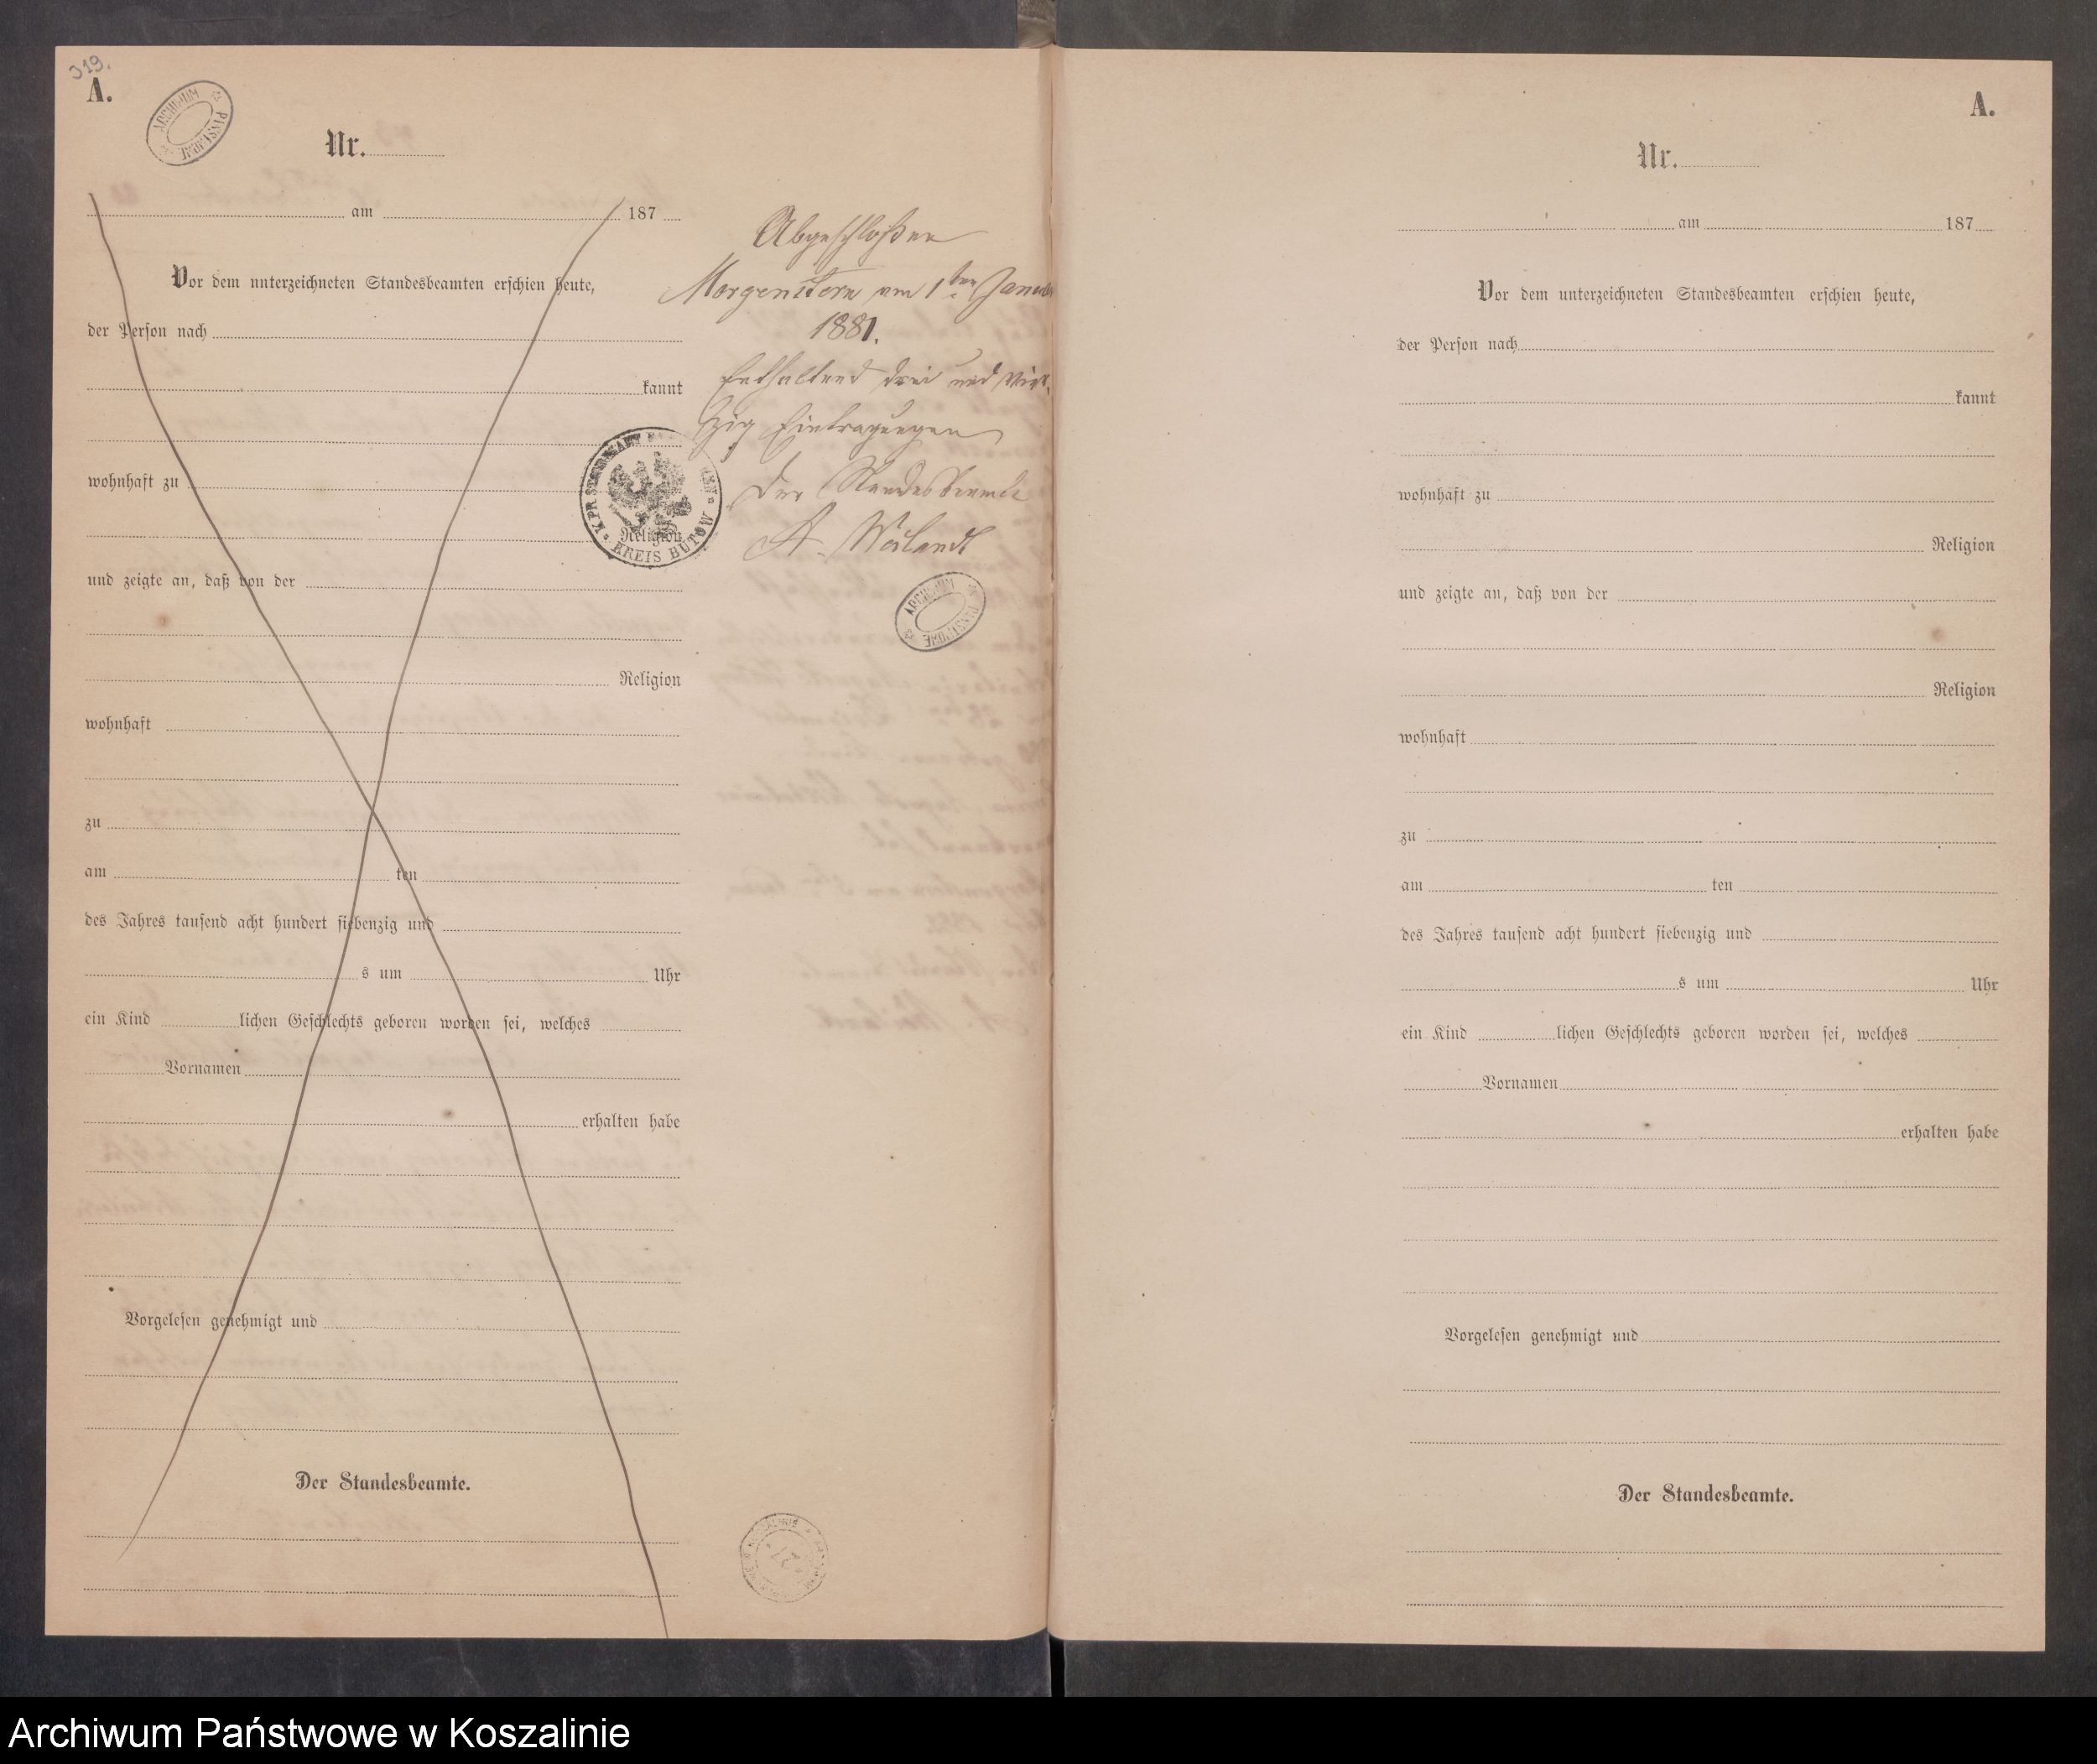 319.
A.
ARCHIWUM PAŃSTWOWE
Nr.
am 187
Vor dem unterzeichneten Standesbeamten erschien heute,
der Person nach
kannt
wohnhaft zu
Religion
und zeigte an, daß von der
Religion
wohnhaft
zu
am ten
des Jahres tausend acht hundert siebenzig und
s um Uhr
ein Kind lichen Geschlechts geboren worden sei, welches
Vornamen
erhalten habe
Vorgelesen genehmigt und
Der Standesbeamte.
Abgeschloßen
Morgenstern am 1ten Januar
1881.
Enthaltend drei und vier-
zig Eintragungen
Der Standesbeamte
A. Weilandt
K. PR. STANDESAMT
KREIS BÜTOW
ARCHIWUM PAŃSTWOWE
A.
Nr.
am 187
Vor dem unterzeichneten Standesbeamten erschien heute,
der Person nach
kannt
wohnhaft zu
Religion
und zeigte an, daß von der
Religion
wohnhaft
zu
am ten
des Jahres tausend acht hundert siebenzig und
s um Uhr
ein Kind lichen Geschlechts geboren worden sei, welches
Vornamen
erhalten habe
Vorgelesen genehmigt und
Der Standesbeamte.
Archiwum Państwowe w Koszalinie